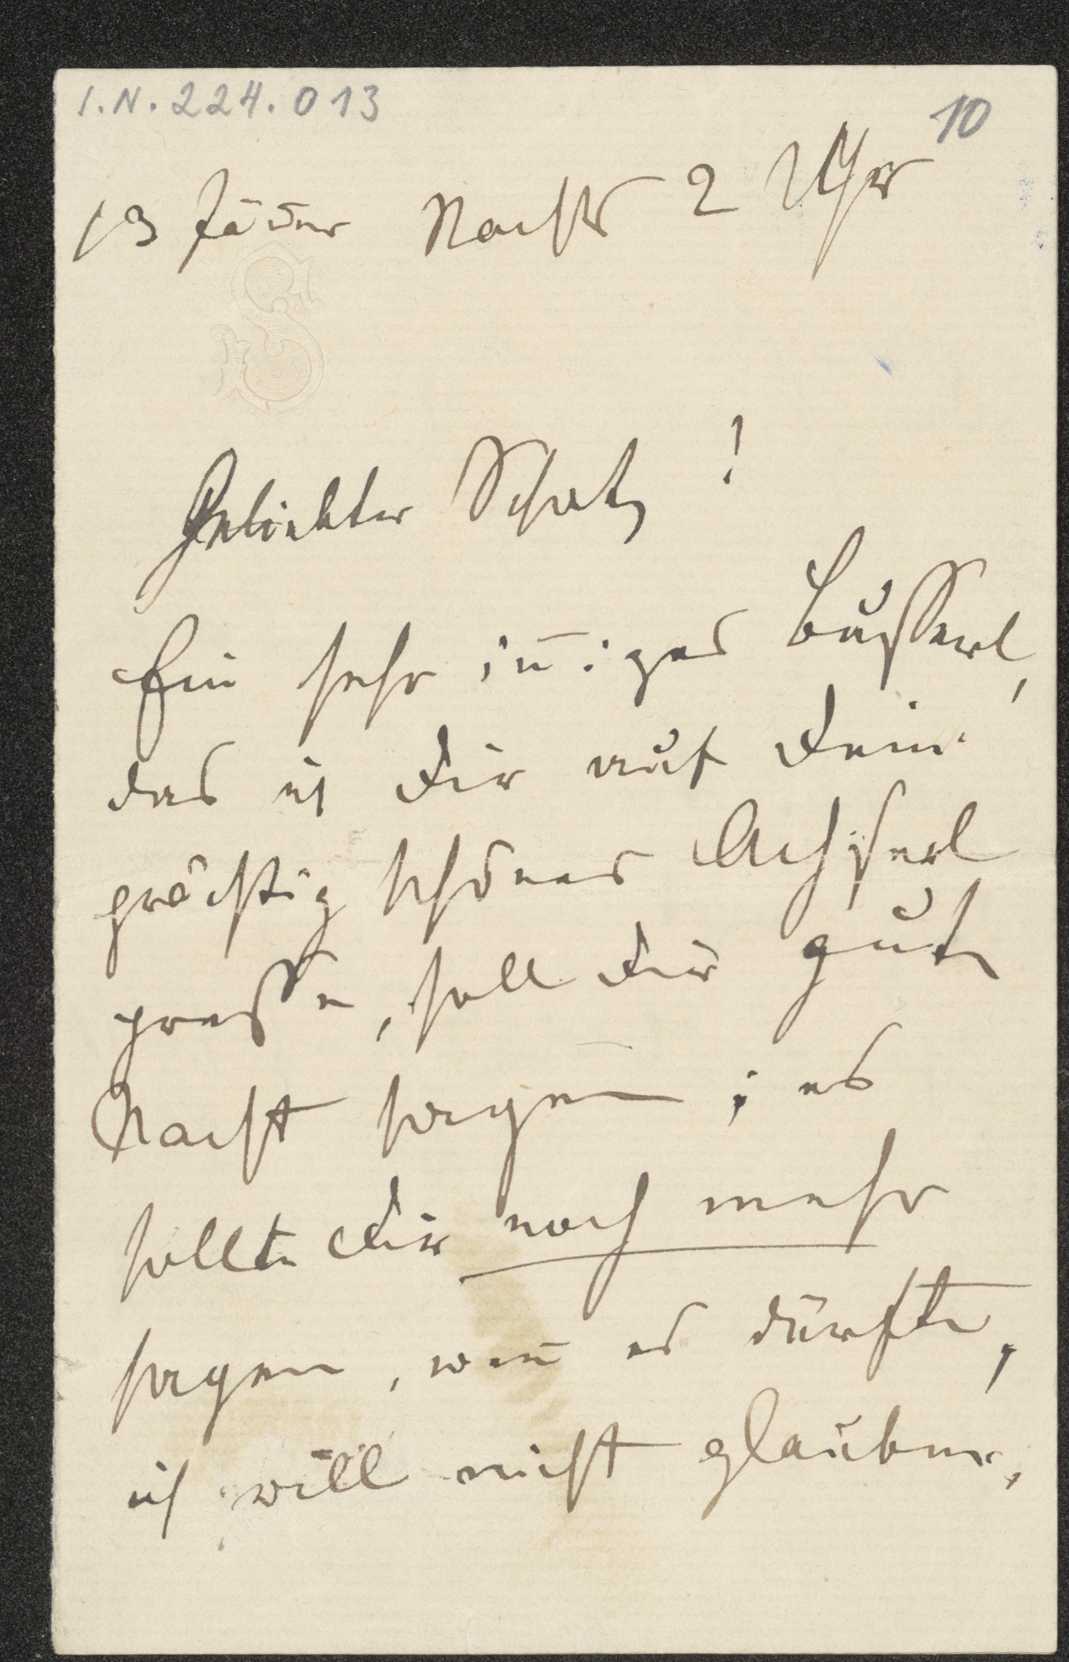 I.N. 224.013
10
13 Jäner Nachts 2 Uhr
S
Geliebter Schatz!
Ein sehr inn̄iges Busserl,
das ich Dir auf Dein
prächtig schönes Achserl
presse, soll Dir gute
Nacht sagen; es
sollte Dir noch mehr
sagen, wen̄ es dürfte,
ich will nicht glauben,